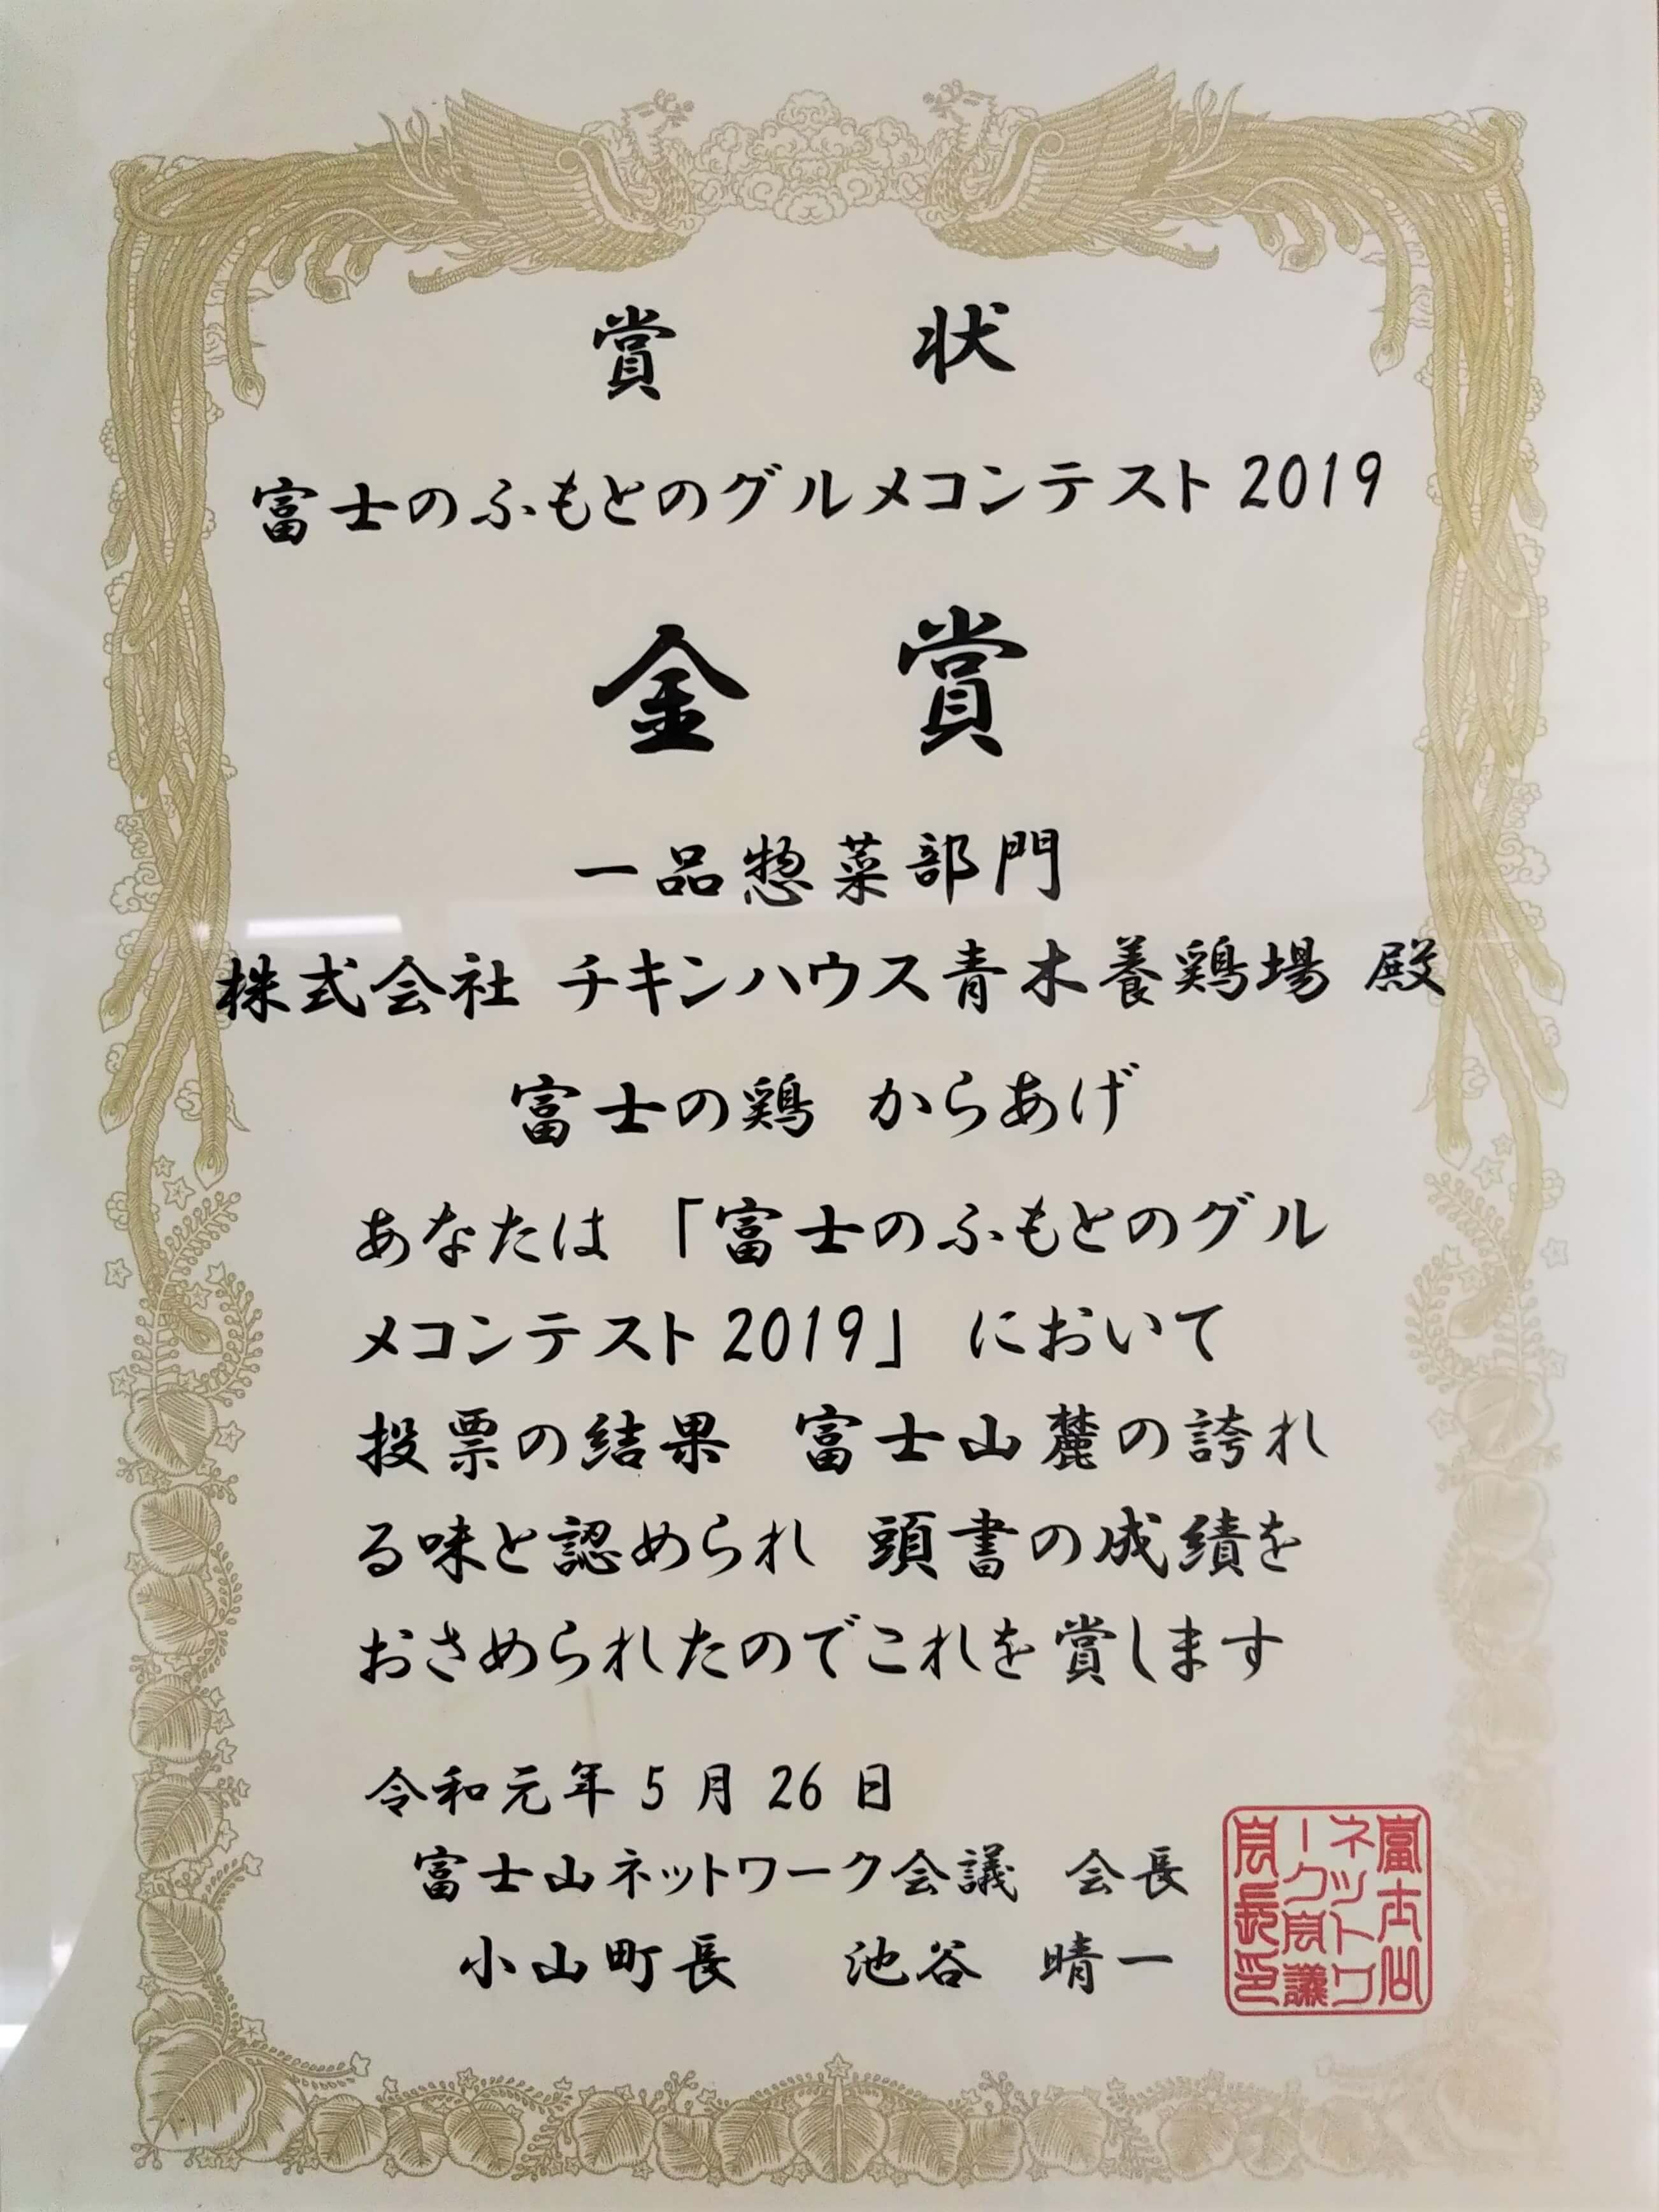 賞状
富士のふもとのグルメコンテスト2019
金賞
一品惣菜部門
株式会社 チキンハウス青木養鶏場 殿
富士の鶏 からあげ
あなたは「富士のふもとのグル
メコンテスト2019」において
投票の結果 富士山麓の誇れ
る味と認められ 頭書の成績を
おさめられたのでこれを賞します
令和元年5月26日
富士山ネットワーク会議 会長
小山町長 池谷 晴一
富士山
ネットワ
ーク会議
会長印